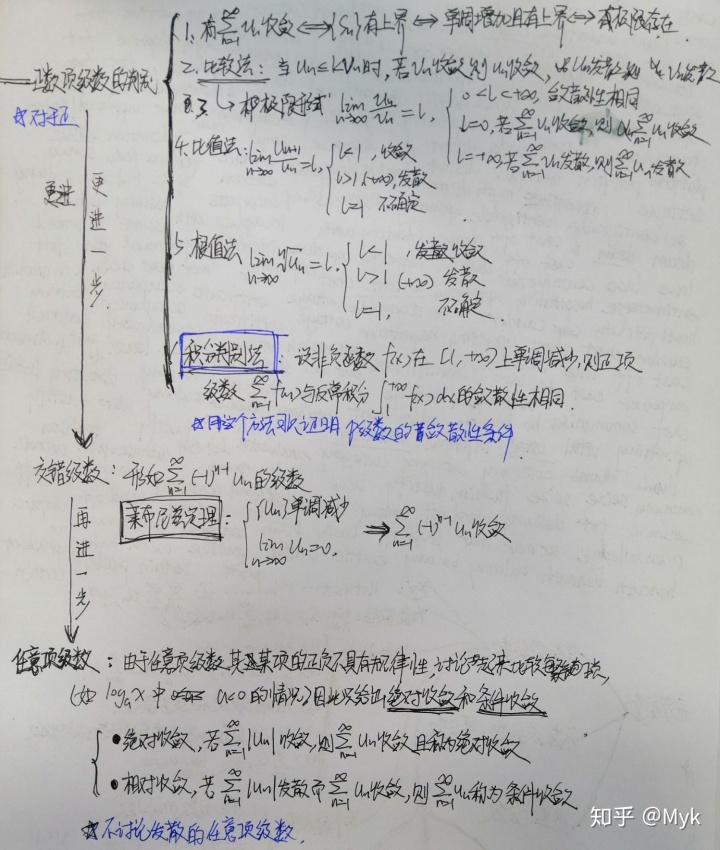 1、若∑_{n=1}^{∞} Un收敛 ⟺ {Sn}有上界 ⟺ 单调增加且有上界 ⟺ 有极限存在.
正数项级数的判别
2. 比较法: 当 Un ≤ kVn时, 若 Vn收敛则 Un收敛, Un发散则 Vn发散
☆对于正
3 ↳ 极限形式 lim_{n→∞} Un/Vn = l,
0<l<+∞, 敛散性相同
l=0, 若∑_{n=1}^{∞} Vn收敛, 则∑_{n=1}^{∞} Un收敛
l=+∞, 若∑_{n=1}^{∞} Vn发散, 则∑_{n=1}^{∞} Un发散
4. 比值法: lim_{n→∞} Un+1/Un = l,
l<1, 收敛
l>1 (+∞), 发散
l=1 不确定
更进
更进一步.
5. 根值法 lim_{n→∞} ⁿ√Un = l,
l<1, 收敛
l>1 (+∞) 发散
l=1, 不确定.
积分判别法: 设非负函数 f(x) 在 [1, +∞) 上单调减少, 则正项
级数 ∑_{n=1}^{∞} f(n) 与反常积分 ∫_1^{+∞} f(x)dx 的敛散性相同.
☆用这个方法可以证明 P级数的敛散性条件
交错级数: 形如∑_{n=1}^{∞} (-1)^{n-1} Un 的级数
莱布尼兹定理:
{Un}单调减少
lim_{n→∞} Un=0.
⟹ ∑_{n=1}^{∞} (-1)^{n-1} Un收敛
再进一步
任意项级数: 由于任意项级数其某项的正负不具有规律性, 讨论起来比较
(如 logₐx 中 a<0 的情况) 因此只给出绝对收敛和条件收敛
• 绝对收敛, 若∑_{n=1}^{∞} |Un| 收敛, 则∑_{n=1}^{∞} Un收敛且称为绝对收敛
• 相对收敛, 若∑_{n=1}^{∞} |Un| 发散而∑_{n=1}^{∞} Un收敛, 则∑_{n=1}^{∞} Un称为条件收敛
☆不讨论发散的任意项级数.
知乎 @Myk